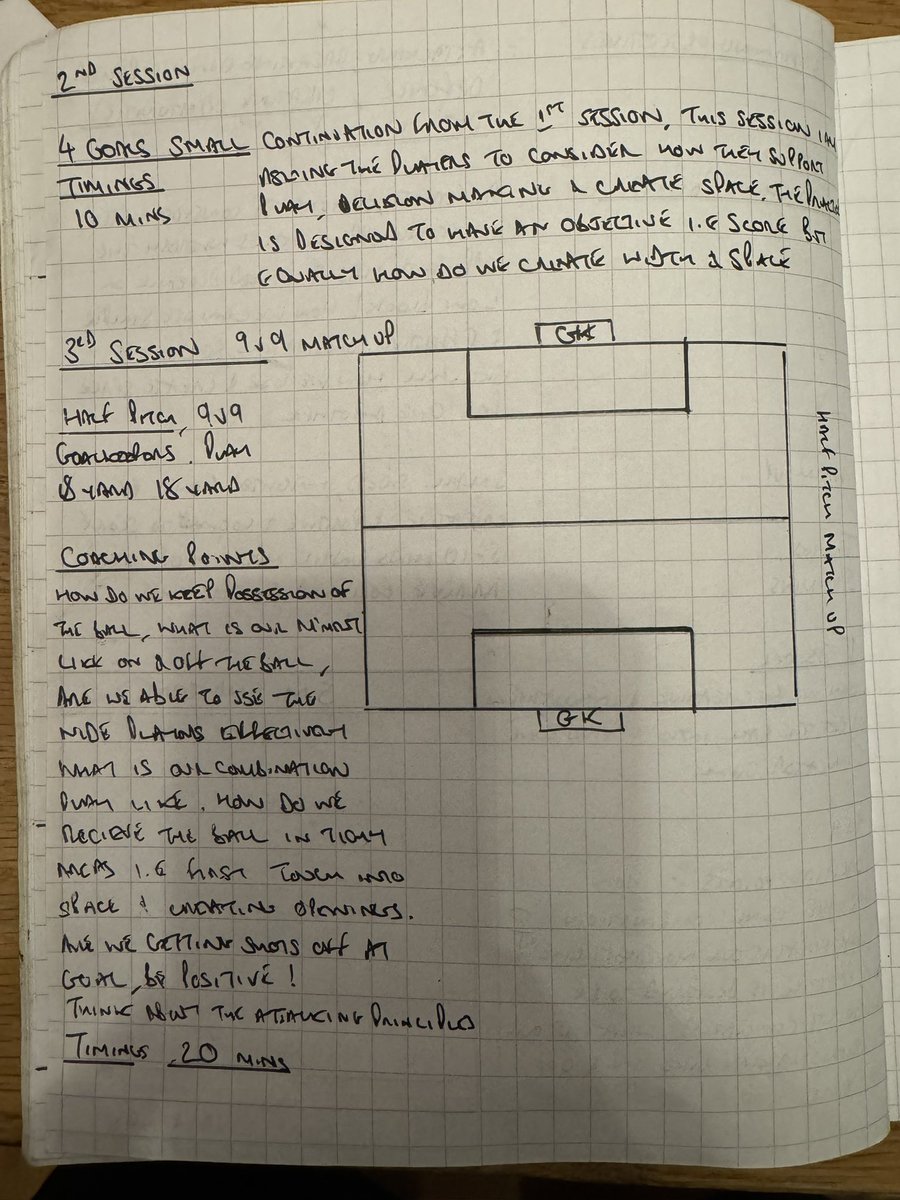 2ND SESSION
4 GOALS SMALL
TIMINGS
10 MINS
CONTINATION FROM THE 1ST SESSION, THIS SESSION
ASKING THE PLAYERS TO CONSIDER HOW THEY SUPPORT
PLAY, DECISION MAKING & CREATE SPACE. THE
IS DESIGNED TO HAVE AN OBJECTIVE I.E SCORE BUT
EQUALLY HOW DO WE CREATE WIDTH & SPACE
3RD SESSION 9v9 MATCH UP
HALF PITCH, 9v9
GOALKEEPERS. PLAY
18 YARD
COACHING POINTS
HOW DO WE KEEP POSSESSION OF
THE BALL, WHAT IS OUR
LIKE ON & OFF THE BALL,
ARE WE ABLE TO USE THE
WIDE PLAYERS EFFECTIVELY
WHAT IS OUR COMBINATION
PLAY LIKE. HOW DO WE
RECIEVE THE BALL IN TIGHT
AREAS I.E FIRST TOUCH INTO
SPACE & CREATING OPENINGS.
ARE WE GETTING SHOTS OFF AT
GOAL, BE POSITIVE!
THINK ABOUT THE ATTACKING PRINCIPLES
TIMINGS 20 MINS
GK
HALF PITCH MATCH UP
GK